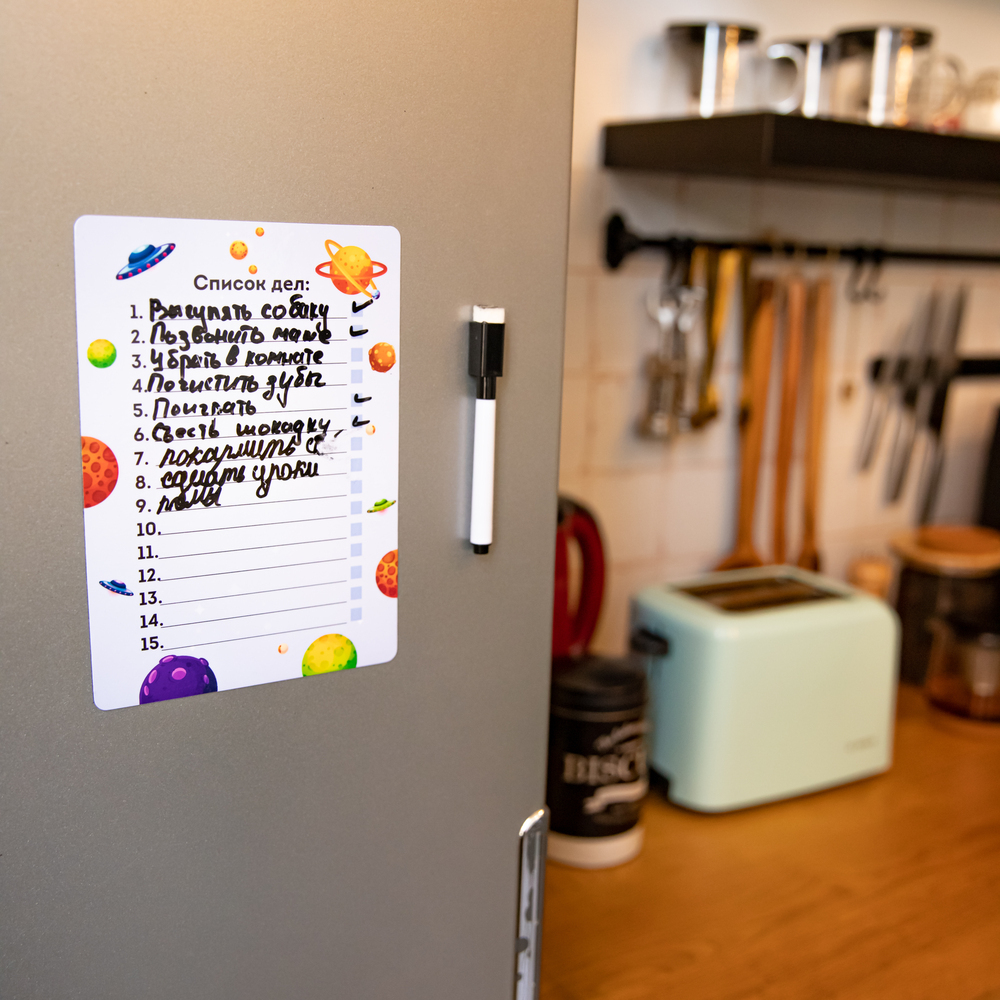 Список дел:
1. Выгулять собаку
2. Позвонить маме
3. Убрать в комнате
4. Почистить зубы
5. Поиграть
6. Съесть шокадку
7. покармить
8. сделать уроки
9.
10.
11.
12.
13.
14.
15.